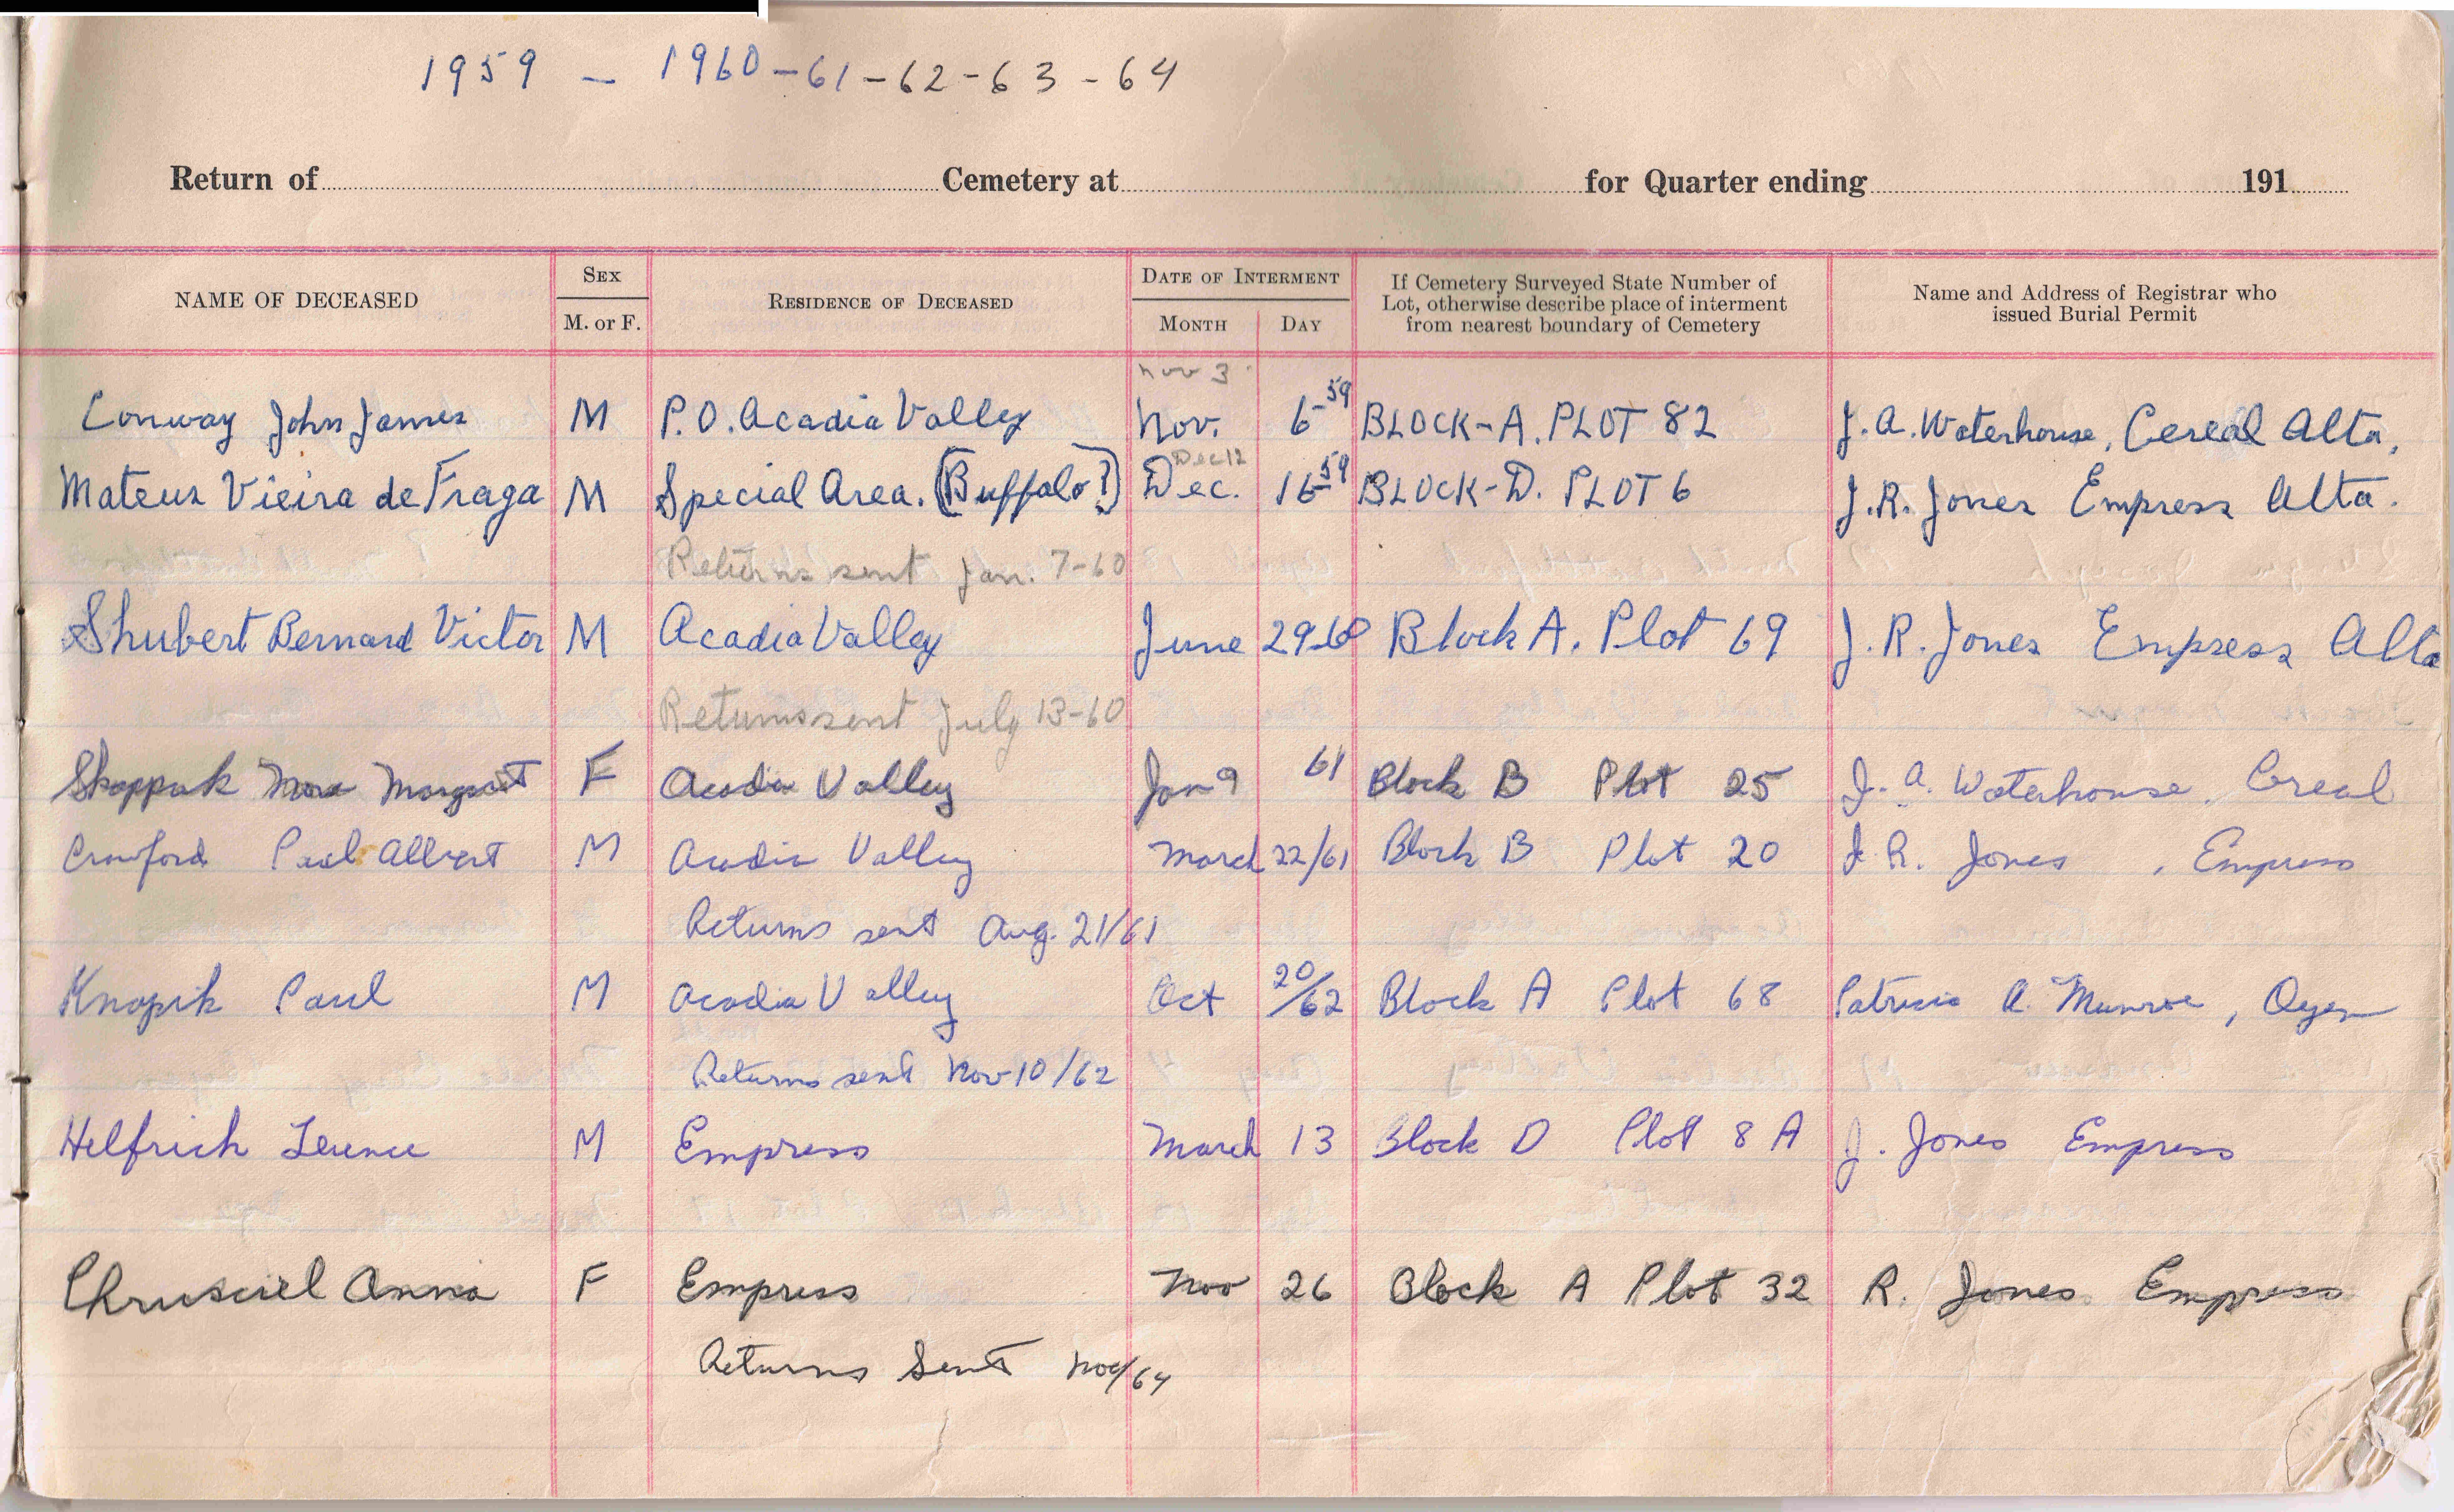 1959 - 1960-61-62-63-64
Return of Cemetery at for Quarter ending 191
NAME OF DECEASED
SEX
M. or F.
RESIDENCE OF DECEASED
DATE OF INTERMENT
MONTH DAY
If Cemetery Surveyed State Number of
Lot, otherwise describe place of interment
from nearest boundary of Cemetery
Name and Address of Registrar who
issued Burial Permit
nov 3
Conway John James M P.O. Acadia Valley Nov. 6-59 BLOCK-A. PLOT 82 J. A. Waterhouse, Cereal Alta.
Dec 12
Mateus Vieira de Fraga M Special Area. (Buffalo?) Dec. 16-59 BLOCK-D. PLOT 6 J.R. Jones Empress Alta.
Returns sent Jan. 7-60
Shubert Bernard Victor M Acadia Valley June 29-60 Block A. Plot 69 J. R. Jones Empress Alta
Returns sent July 13-60
Margaret F Acadia Valley Jan 9 61 Block B Plot 25 J. A. Waterhouse, Cereal
Crawford Paul Albert M Acadia Valley March 22/61 Block B Plot 20 J. R. Jones, Empress
Returns sent Aug. 21/61
Knopik Paul M Acadia Valley Oct 20/62 Block A Plot 68 Patricia A. Munroe, Oyen
Returns sent Nov 10/62
Helfrich Terence M Empress March 13 Block D Plot 8 A J. Jones Empress
Chrusciel Anna F Empress Nov 26 Block A Plot 32 R. Jones Empress
Returns Sent Nov/64